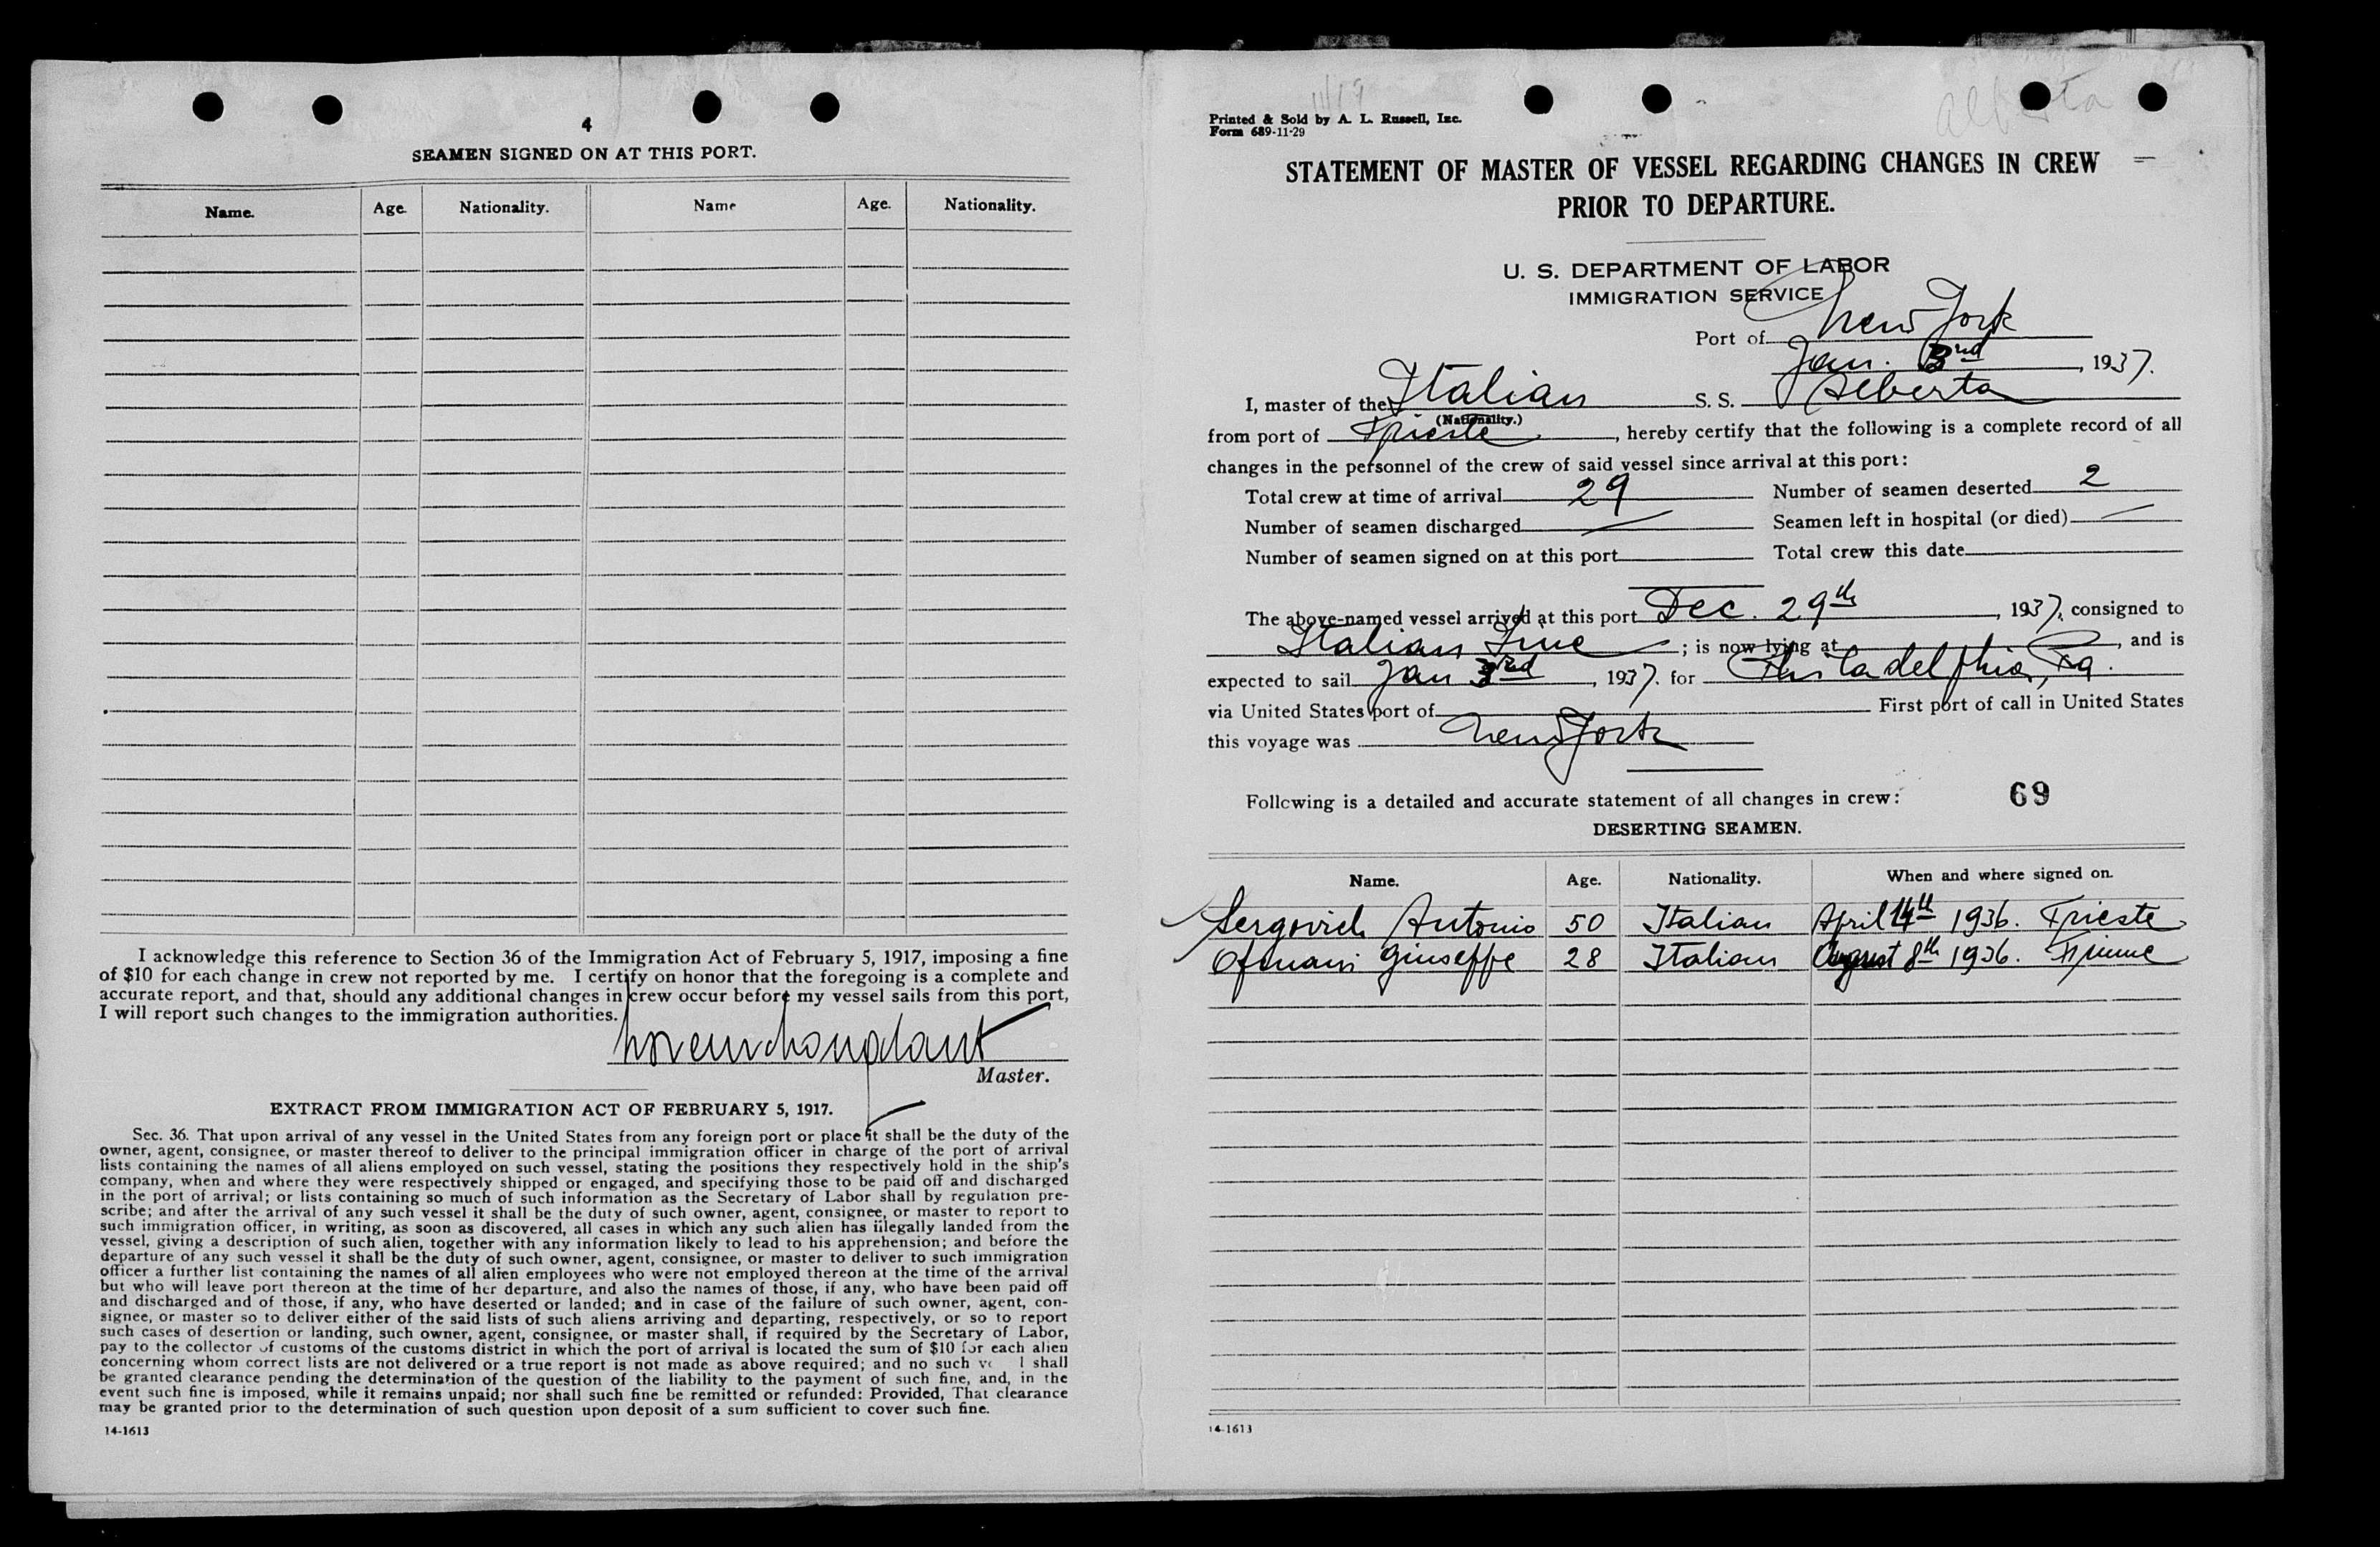 4
SEAMEN SIGNED ON AT THIS PORT.
Name. Age. Nationality. Name Age. Nationality.
I acknowledge this reference to Section 36 of the Immigration Act of February 5, 1917, imposing a fine
of $10 for each change in crew not reported by me. I certify on honor that the foregoing is a complete and
accurate report, and that, should any additional changes in crew occur before my vessel sails from this port,
I will report such changes to the immigration authorities.
Master.
EXTRACT FROM IMMIGRATION ACT OF FEBRUARY 5, 1917.
Sec. 36. That upon arrival of any vessel in the United States from any foreign port or place it shall be the duty of the
owner, agent, consignee, or master thereof to deliver to the principal immigration officer in charge of the port of arrival
lists containing the names of all aliens employed on such vessel, stating the positions they respectively hold in the ship's
company, when and where they were respectively shipped or engaged, and specifying those to be paid off and discharged
in the port of arrival; or lists containing so much of such information as the Secretary of Labor shall by regulation pre-
scribe; and after the arrival of any such vessel it shall be the duty of such owner, agent, consignee, or master to report to
such immigration officer, in writing, as soon as discovered, all cases in which any such alien has illegally landed from the
vessel, giving a description of such alien, together with any information likely to lead to his apprehension; and before the
departure of any such vessel it shall be the duty of such owner, agent, consignee, or master to deliver to such immigration
officer a further list containing the names of all alien employees who were not employed thereon at the time of the arrival
but who will leave port thereon at the time of her departure, and also the names of those, if any, who have been paid off
and discharged and of those, if any, who have deserted or landed; and in case of the failure of such owner, agent, con-
signee, or master so to deliver either of the said lists of such aliens arriving and departing, respectively, or so to report
such cases of desertion or landing, such owner, agent, consignee, or master shall, if required by the Secretary of Labor,
pay to the collector of customs of the customs district in which the port of arrival is located the sum of $10 for each alien
concerning whom correct lists are not delivered or a true report is not made as above required; and no such shall
be granted clearance pending the determination of the question of the liability to the payment of such fine, and, in the
event such fine is imposed, while it remains unpaid; nor shall such fine be remitted or refunded: Provided, That clearance
may be granted prior to the determination of such question upon deposit of a sum sufficient to cover such fine.
14-1613
Alberta
Printed & Sold by A. L. Russell, Inc.
Form 689-11-29
STATEMENT OF MASTER OF VESSEL REGARDING CHANGES IN CREW
PRIOR TO DEPARTURE.
U. S. DEPARTMENT OF LABOR
IMMIGRATION SERVICE
Port of New York
Jan. 3rd, 1937.
I, master of the Italian S. S. Alberta
(Nationality.)
from port of Trieste, hereby certify that the following is a complete record of all
changes in the personnel of the crew of said vessel since arrival at this port:
Total crew at time of arrival 29 Number of seamen deserted 2
Number of seamen discharged — Seamen left in hospital (or died) —
Number of seamen signed on at this port Total crew this date
The above-named vessel arrived at this port Dec. 29th, 1937, consigned to
Italian Line; is now lying at, and is
expected to sail Jan 3rd, 1937. for Philadelphia, Pa.
via United States port of First port of call in United States
this voyage was New York
Following is a detailed and accurate statement of all changes in crew: 69
DESERTING SEAMEN.
Name. Age. Nationality. When and where signed on.
Sergovich Antonio 50 Italian April 14th 1936. Trieste
Giuseppe 28 Italian August 8th 1936. Fiume
14-1613